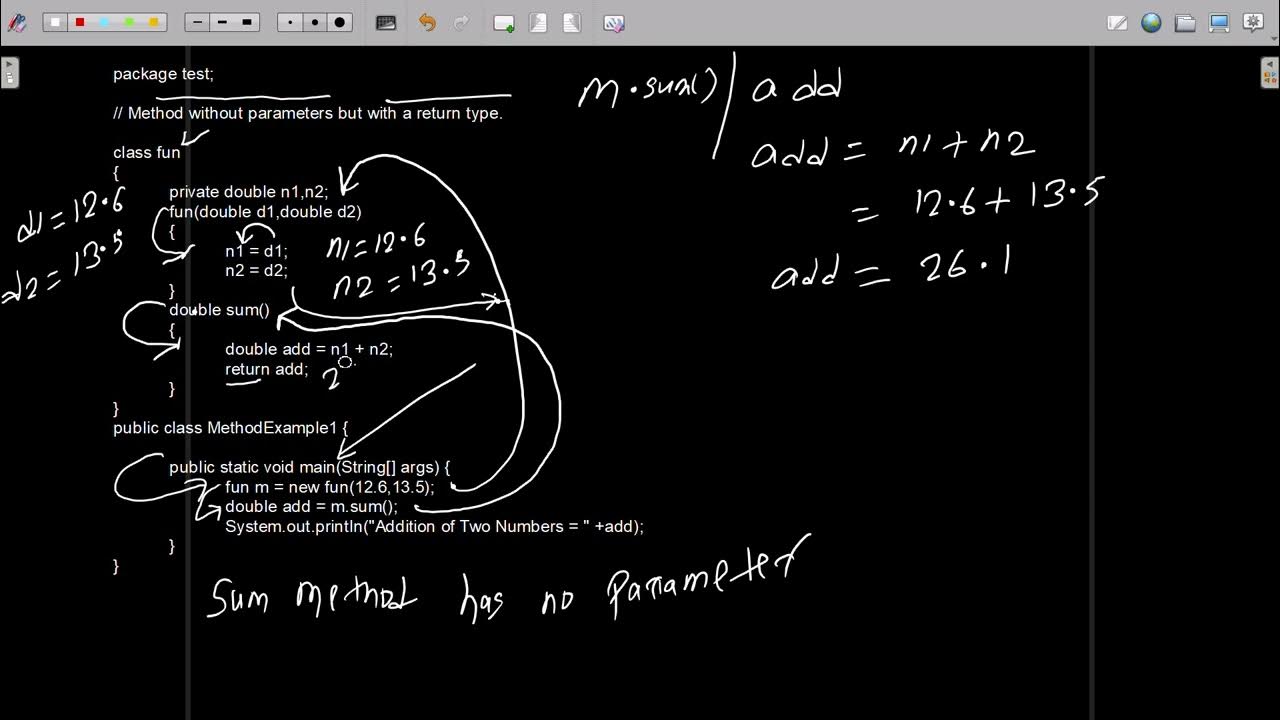 package test;
// Method without parameters but with a return type.
class fun
{
private double n1,n2;
fun(double d1,double d2)
{
n1 = d1;
n2 = d2;
}
double sum()
{
double add = n1 + n2;
return add;
}
}
public class MethodExample1 {
public static void main(String[] args) {
fun m = new fun(12.6,13.5);
double add = m.sum();
System.out.println("Addition of Two Numbers = " +add);
}
}
d1 = 12.6
d2 = 13.5
n1 = 12.6
n2 = 13.5
2
m.sum() | add
add = n1 + n2
= 12.6 + 13.5
add = 26.1
Sum method has no Parameter